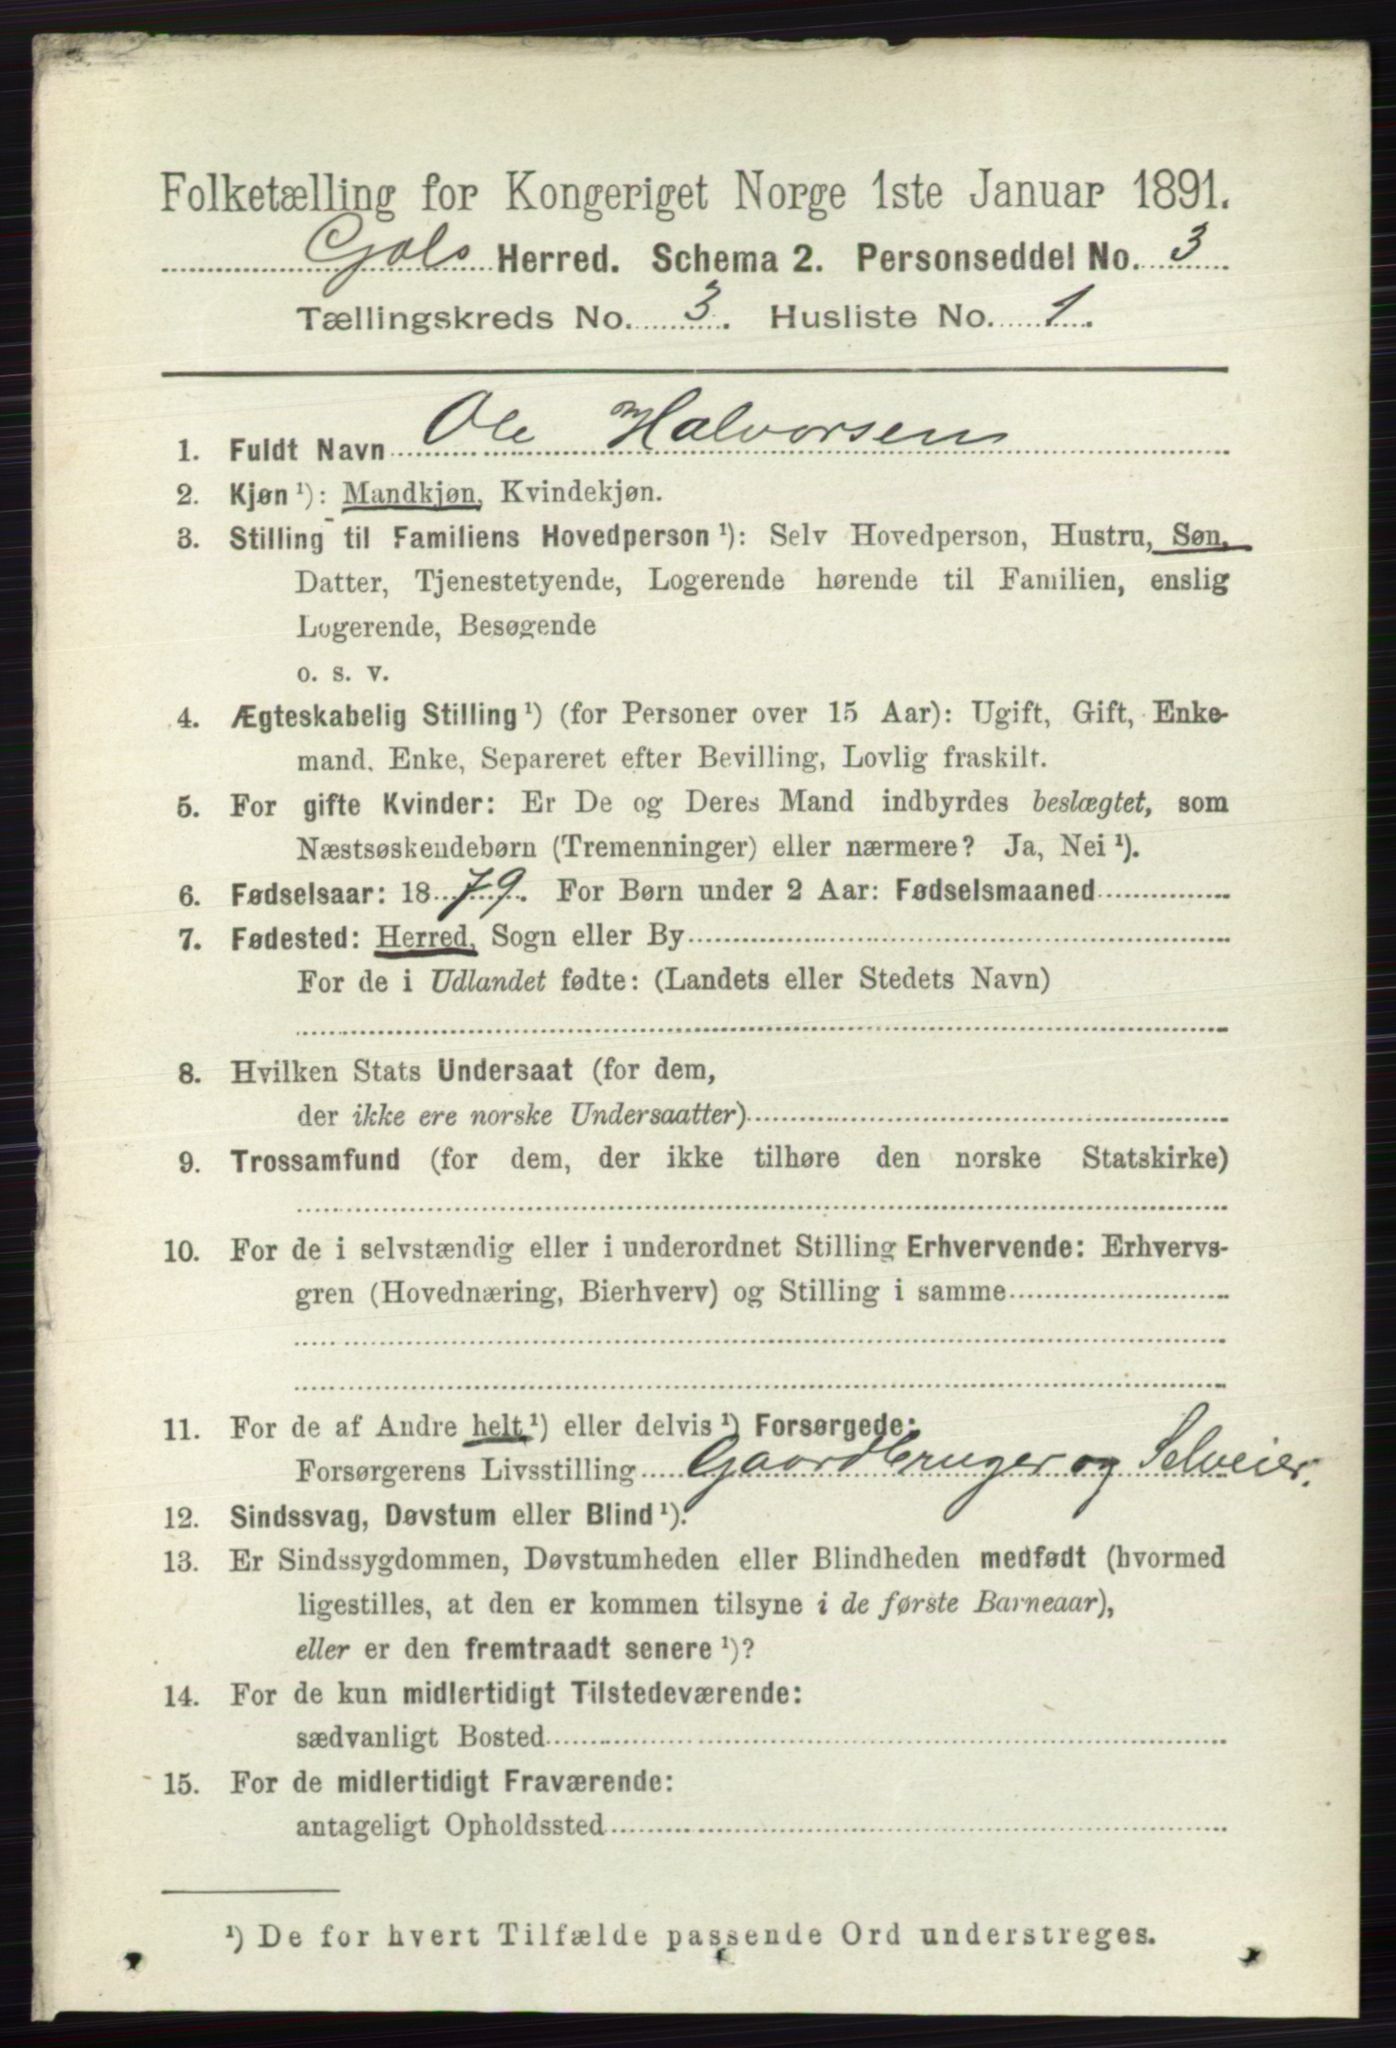 Folketælling for Kongeriget Norge 1ste Januar 1891.
Gols Herred. Schema 2. Personseddel No. 3
Tællingskreds No. 3. Husliste No. 1.
1. Fuldt Navn Ole Halvorsen
2. Kjøn ¹): Mandkjøn, Kvindekjøn.
3. Stilling til Familiens Hovedperson ¹): Selv Hovedperson, Hustru, Søn,
Datter, Tjenestetyende, Logerende hørende til Familien, enslig
Logerende, Besøgende
o. s. v.
4. Ægteskabelig Stilling ¹) (for Personer over 15 Aar): Ugift, Gift, Enke-
mand. Enke, Separeret efter Bevilling, Lovlig fraskilt.
5. For gifte Kvinder: Er De og Deres Mand indbyrdes beslægtet, som
Næstsøskendebørn (Tremenninger) eller nærmere? Ja, Nei ¹).
6. Fødselsaar: 1879. For Børn under 2 Aar: Fødselsmaaned
7. Fødested: Herred, Sogn eller By
For de i Udlandet fødte: (Landets eller Stedets Navn)
8. Hvilken Stats Undersaat (for dem,
der ikke ere norske Undersaatter)
9. Trossamfund (for dem, der ikke tilhøre den norske Statskirke)
10. For de i selvstændig eller i underordnet Stilling Erhvervende: Erhvervs-
gren (Hovednæring, Bierhverv) og Stilling i samme
11. For de af Andre helt ¹) eller delvis ¹) Forsørgede:
Forsørgerens Livsstilling Gaardbruger og Selveier.
12. Sindssvag, Døvstum eller Blind ¹).
13. Er Sindssygdommen, Døvstumheden eller Blindheden medfødt (hvormed
ligestilles, at den er kommen tilsyne i de første Barneaar),
eller er den fremtraadt senere ¹)?
14. For de kun midlertidigt Tilstedeværende:
sædvanligt Bosted
15. For de midlertidigt Fraværende:
antageligt Opholdssted
¹) De for hvert Tilfælde passende Ord understreges.